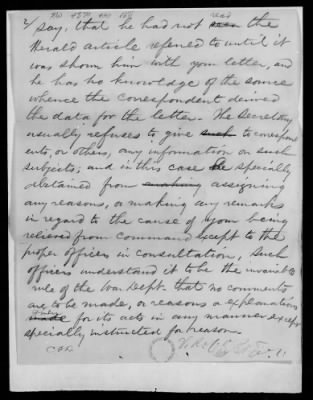 2/ say, that he had not seen read the
Herald article referred to until it
was shown him with your letter, and
he has no knowledge of the source
whence the correspondent derived
the data for the letter. The Secretary
usually refuses to give such to correspond
ents, or others, any information on such
subjects; and in this case he specially
abstained from making assigning
any reasons, or making any remarks
in regard to the cause of your being
relieved from command except to the
proper officers in consultation, Such
officers understand it to be the invariable
rule of the War Dept. that no comments
are to be made, or reasons or explanations
made for its acts in any manner except
specially instructed for reason.